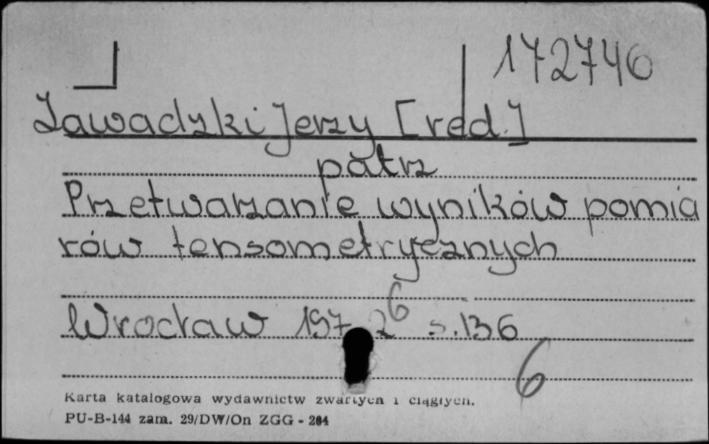 172746
Zawadzki Jerzy [red.]
patrz
Przetwarzanie wyników pomia
rów tensometrycznych
6
Wrocław 197 2 s.136
6
Karta katalogowa wydawnictw zwartych i ciągłych.
PU-B-144 zam. 29/DW/On ZGG - 264